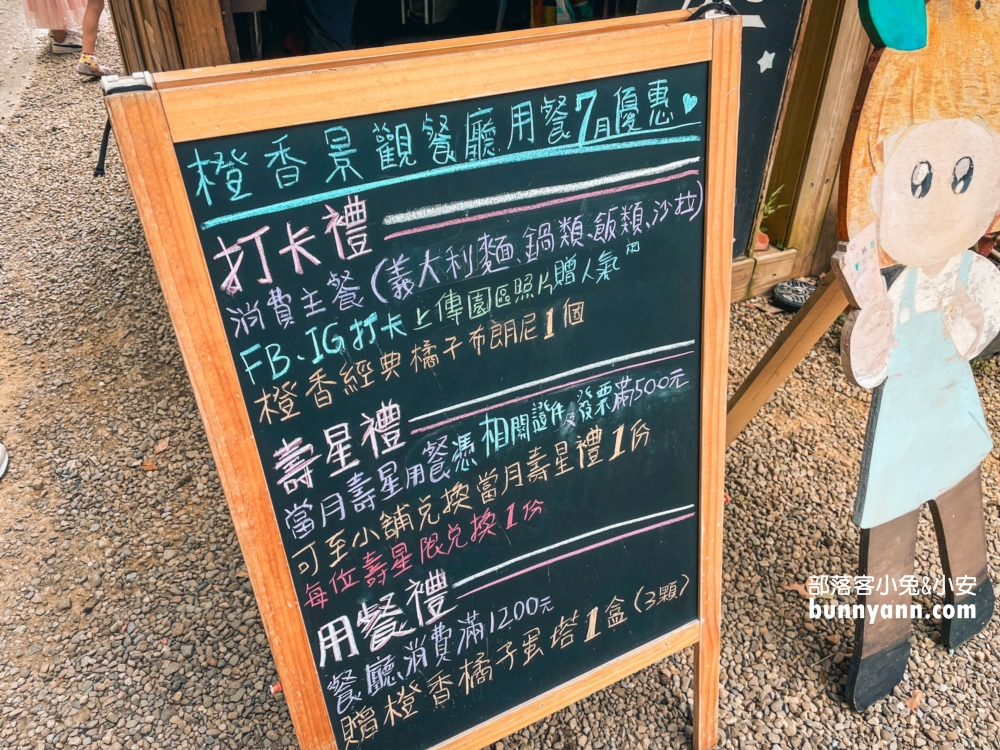 橙香景觀餐廳用餐7月優惠
打卡禮
消費主餐(義大利麵、鍋類、飯類、沙拉)
FB、IG打卡上傳園區照片贈人氣
橙香經典橘子布朗尼1個
壽星禮
當月壽星用餐憑相關證件及發票滿500元
可至小舖兌換當月壽星禮1份
每位壽星限兌換1份
用餐禮
餐廳消費滿1200元
贈橙香橘子蛋塔1盒(3顆)
部落客小兔&小安
bunnyann.com